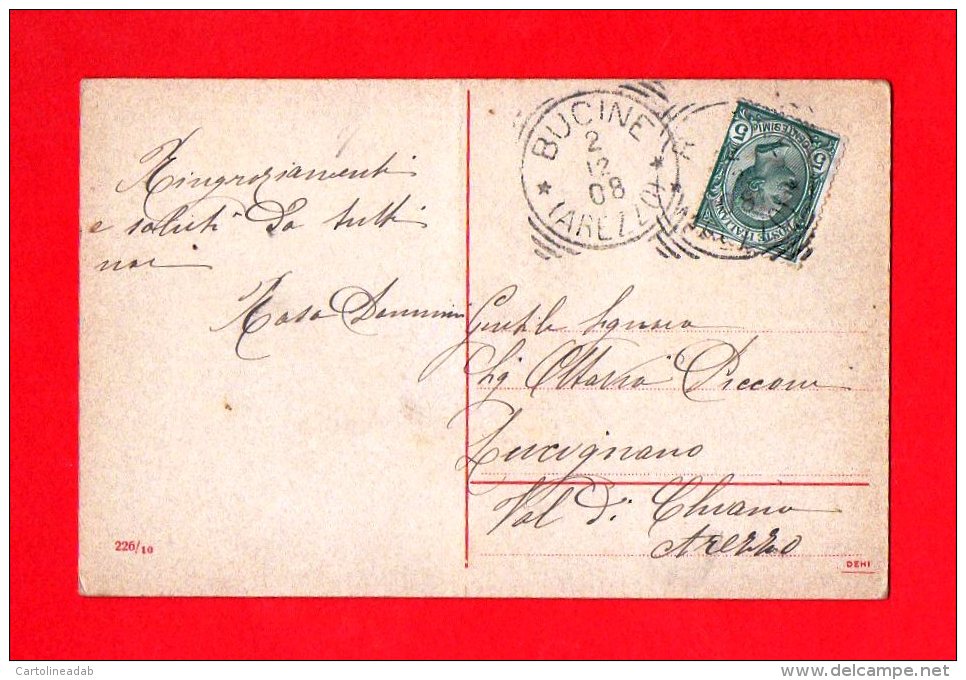 Ringraziamenti
e saluti da tutti
noi
Rosa
BUCINE
2
12
08
(AREZZO)
5
5
CENTESIMI
POSTE ITALIANE
Gentile Signora
Sig Ottavia Picconi
Lucignano
Val di Chiana
Arezzo
226/10
DEHI
Cartolineadab
www.delcampe.net